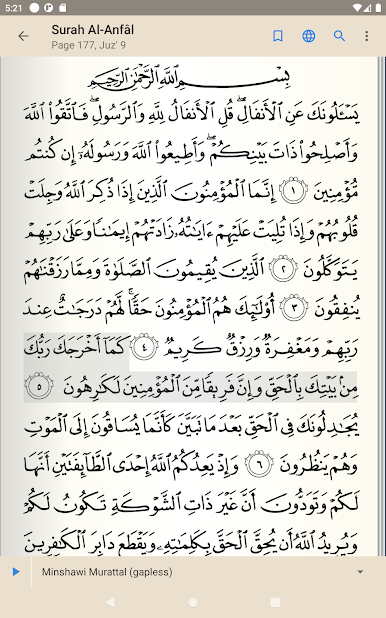 5:21
Surah Al-Anfâl
Page 177, Juz' 9
بِسْمِ ٱللَّهِ ٱلرَّحْمَٰنِ ٱلرَّحِيمِ
يَسْـَٔلُونَكَ عَنِ ٱلْأَنفَالِ ۖ قُلِ ٱلْأَنفَالُ لِلَّهِ وَٱلرَّسُولِ ۖ فَٱتَّقُوا۟ ٱللَّهَ
وَأَصْلِحُوا۟ ذَاتَ بَيْنِكُمْ ۖ وَأَطِيعُوا۟ ٱللَّهَ وَرَسُولَهُۥٓ إِن كُنتُم
مُّؤْمِنِينَ ١ إِنَّمَا ٱلْمُؤْمِنُونَ ٱلَّذِينَ إِذَا ذُكِرَ ٱللَّهُ وَجِلَتْ
قُلُوبُهُمْ وَإِذَا تُلِيَتْ عَلَيْهِمْ ءَايَٰتُهُۥ زَادَتْهُمْ إِيمَٰنًا وَعَلَىٰ رَبِّهِمْ
يَتَوَكَّلُونَ ٢ ٱلَّذِينَ يُقِيمُونَ ٱلصَّلَوٰةَ وَمِمَّا رَزَقْنَٰهُمْ
يُنفِقُونَ ٣ أُو۟لَٰٓئِكَ هُمُ ٱلْمُؤْمِنُونَ حَقًّا ۚ لَّهُمْ دَرَجَٰتٌ عِندَ
رَبِّهِمْ وَمَغْفِرَةٌ وَرِزْقٌ كَرِيمٌ ٤ كَمَآ أَخْرَجَكَ رَبُّكَ
مِنۢ بَيْتِكَ بِٱلْحَقِّ وَإِنَّ فَرِيقًا مِّنَ ٱلْمُؤْمِنِينَ لَكَٰرِهُونَ ٥
يُجَٰدِلُونَكَ فِى ٱلْحَقِّ بَعْدَ مَا تَبَيَّنَ كَأَنَّمَا يُسَاقُونَ إِلَى ٱلْمَوْتِ
وَهُمْ يَنظُرُونَ ٦ وَإِذْ يَعِدُكُمُ ٱللَّهُ إِحْدَى ٱلطَّآئِفَتَيْنِ أَنَّهَا
لَكُمْ وَتَوَدُّونَ أَنَّ غَيْرَ ذَاتِ ٱلشَّوْكَةِ تَكُونُ لَكُمْ
وَيُرِيدُ ٱللَّهُ أَن يُحِقَّ ٱلْحَقَّ بِكَلِمَٰتِهِۦ وَيَقْطَعَ دَابِرَ ٱلْكَٰفِرِينَ
Minshawi Murattal (gapless)